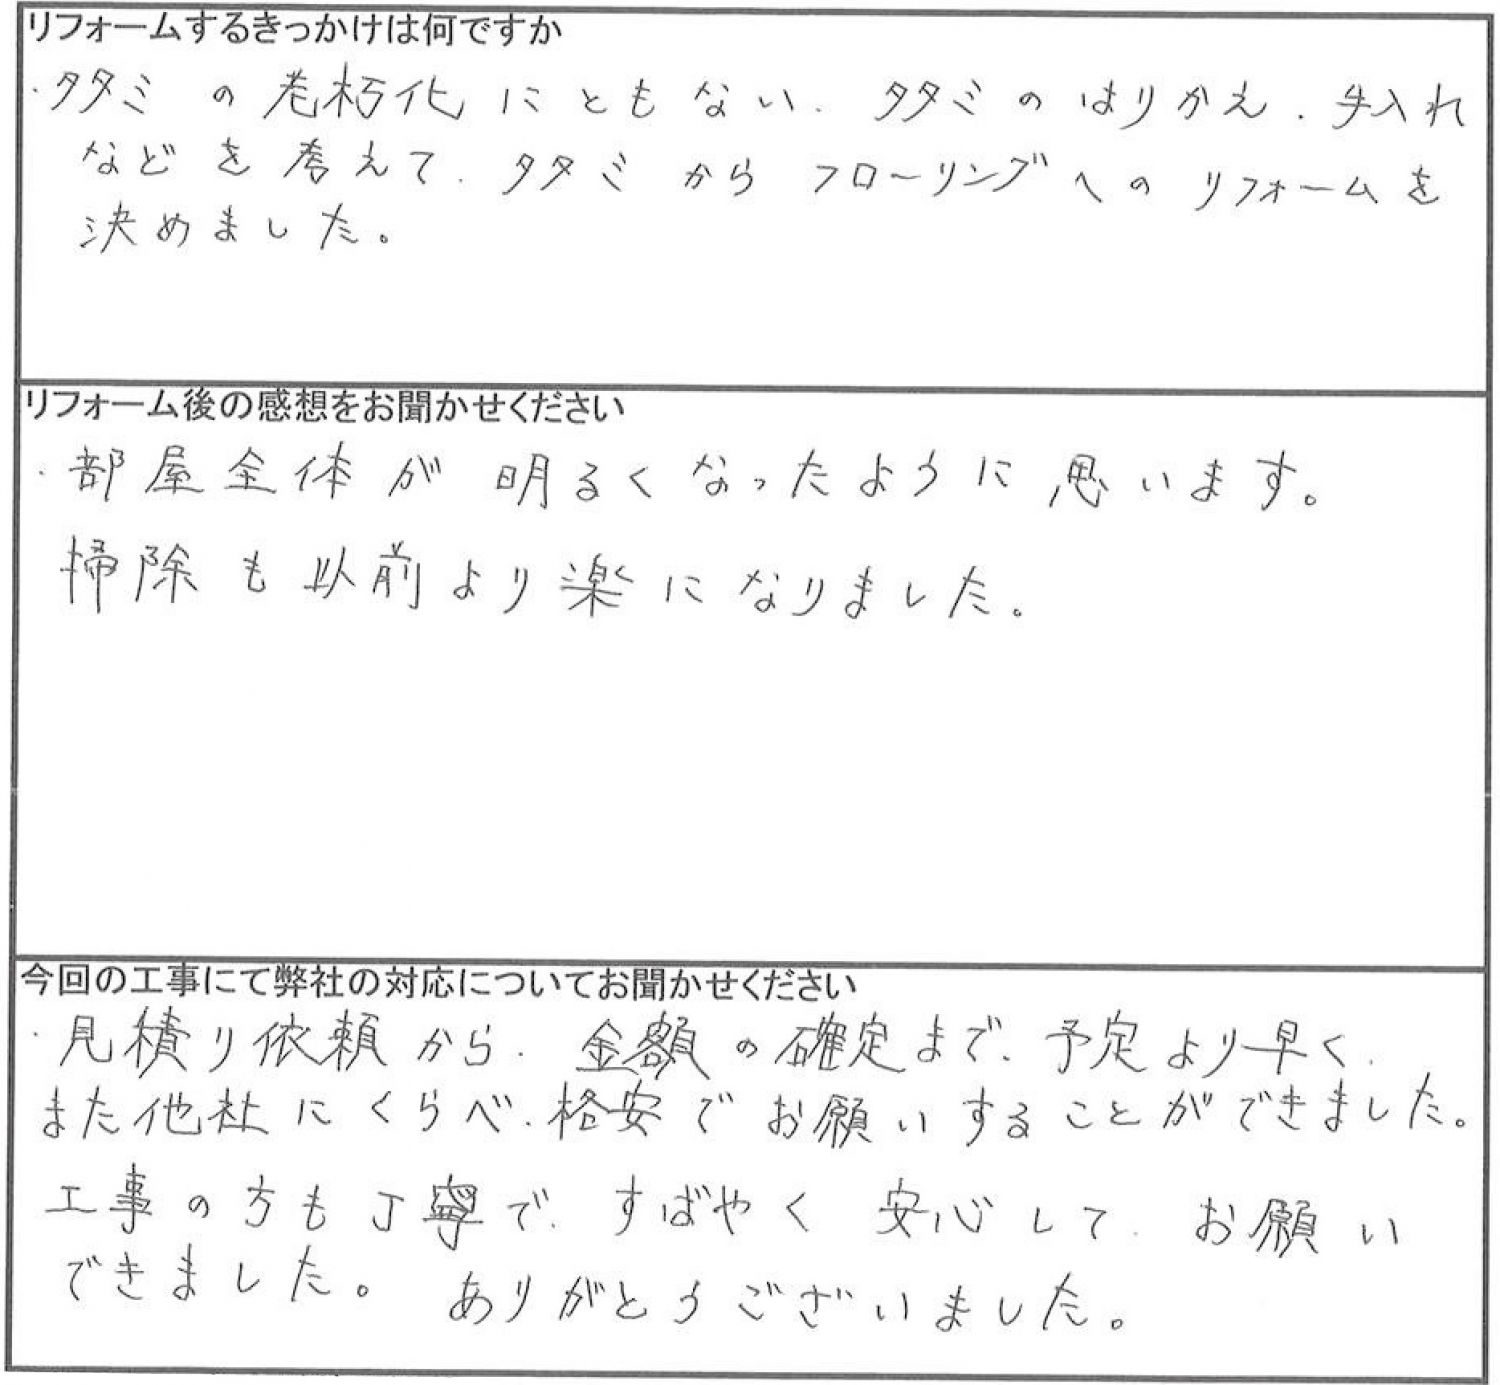 リフォームするきっかけは何ですか
・タタミの老朽化にともない、タタミのはりかえ、手入れ
などを考えて、タタミからフローリングへのリフォームを
決めました。
リフォーム後の感想をお聞かせください
・部屋全体が明るくなったように思います。
掃除も以前より楽になりました。
今回の工事にて弊社の対応についてお聞かせください
・見積り依頼から、金額の確定まで、予定より早く、
また他社にくらべ、格安でお願いすることができました。
工事の方も丁寧で、すばやく安心して、お願い
できました。ありがとうございました。